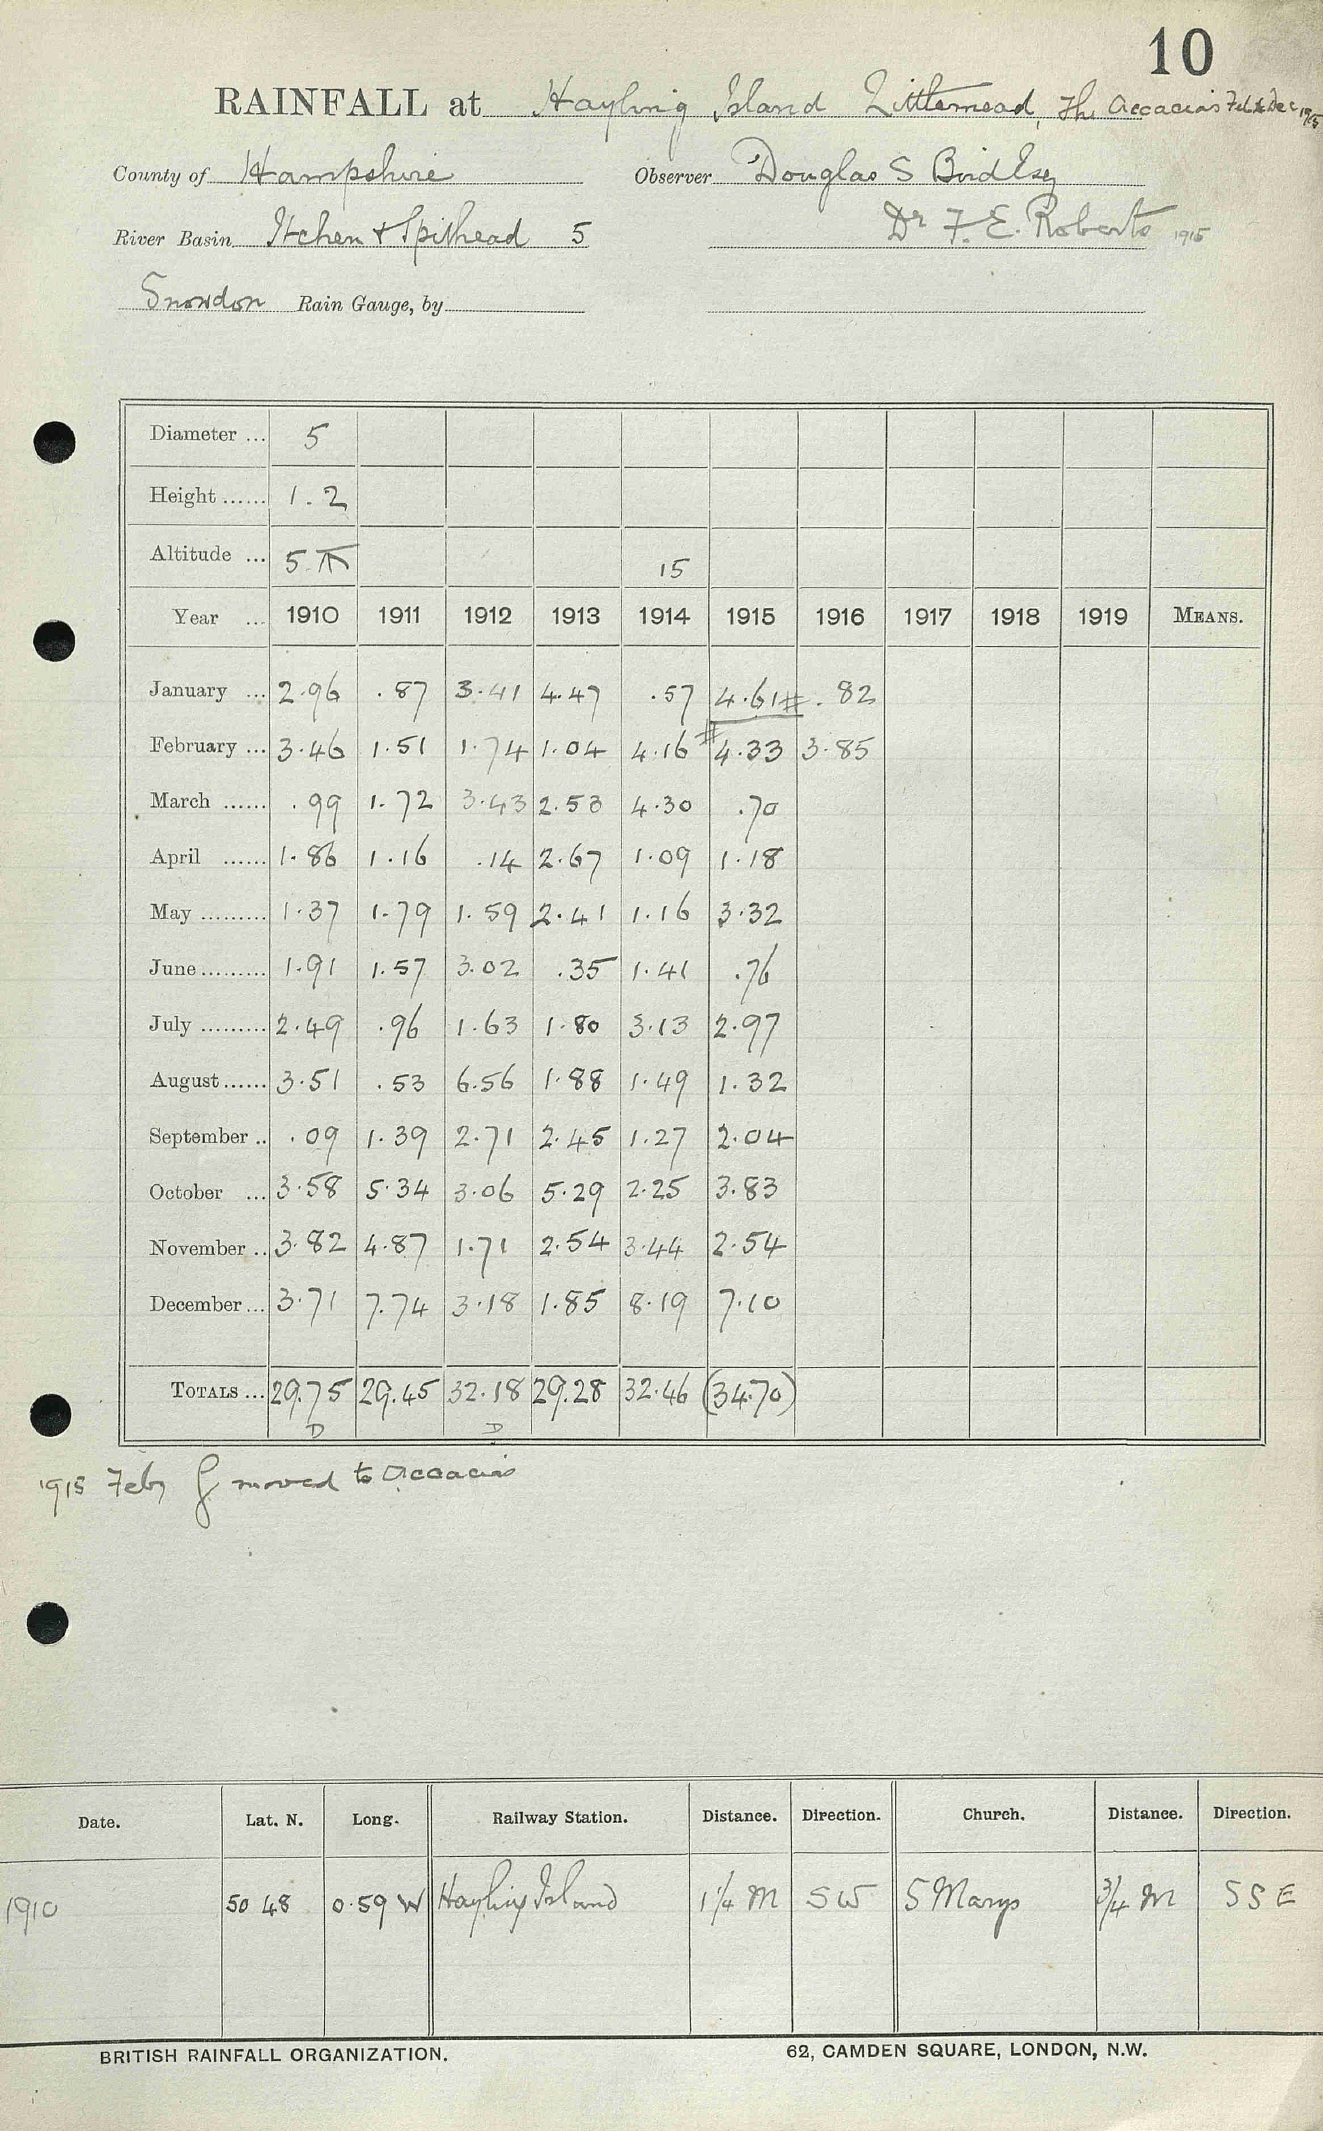 10
RAINFALL at Hayling Island Littlemead, The Accacias Feb to Dec 1915
County of Hampshire Observer Douglas S Bird Esq
River Basin Itchen & Spithead 5 Dr F. E. Roberts 1915
Snowdon Rain Gauge, by
Diameter ... 5
Height ...... 1.2
Altitude ... 5 15
Year ... 1910 1911 1912 1913 1914 1915 1916 1917 1918 1919 MEANS.
January ... 2.96 .87 3.41 4.47 .57 4.61# .82
February ... 3.46 1.51 1.74 1.04 4.16 #4.33 3.85
March ...... .99 1.72 3.43 2.53 4.30 .70
April ...... 1.86 1.16 .14 2.67 1.09 1.18
May ......... 1.37 1.79 1.59 2.41 1.16 3.32
June ......... 1.91 1.57 3.02 .35 1.41 .76
July ......... 2.49 .96 1.63 1.80 3.13 2.97
August ...... 3.51 .53 6.56 1.88 1.49 1.32
September .. .09 1.39 2.71 2.45 1.27 2.04
October ... 3.58 5.34 3.06 5.29 2.25 3.83
November .. 3.82 4.87 1.71 2.54 3.44 2.54
December ... 3.71 7.74 3.18 1.85 8.19 7.10
TOTALS ... 29.75 29.45 32.18 29.28 32.46 (34.70)
D D
1915 Feby G moved to Accacias
Date. Lat. N. Long. Railway Station. Distance. Direction. Church. Distance. Direction.
1910 50 48 0.59 W Hayling Island 1¼ M SW S Marys ¾ M SSE
BRITISH RAINFALL ORGANIZATION. 62, CAMDEN SQUARE, LONDON, N.W.